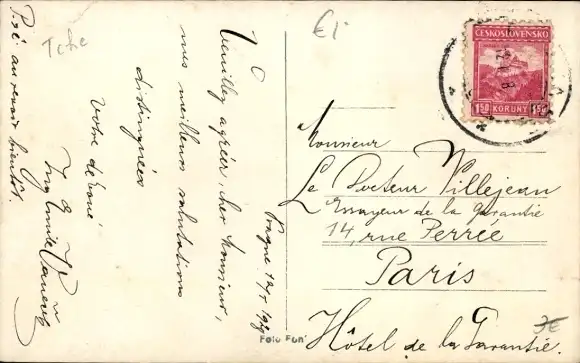 Tche
€1
10
Veuillez agréer, cher Monsieur,
mes meilleures salutations
distinguées
Votre dévoué
Ing Emile
P.S. au revoir bientôt.
Prague
ČESKOSLOVENSKO
1·50 KORUNY 1·50
Monsieur
Le Docteur Villejean
Essayeur de la Garantie
14, rue Perrée
Paris
Hôtel de la Garantie.
Foto Fon
3€